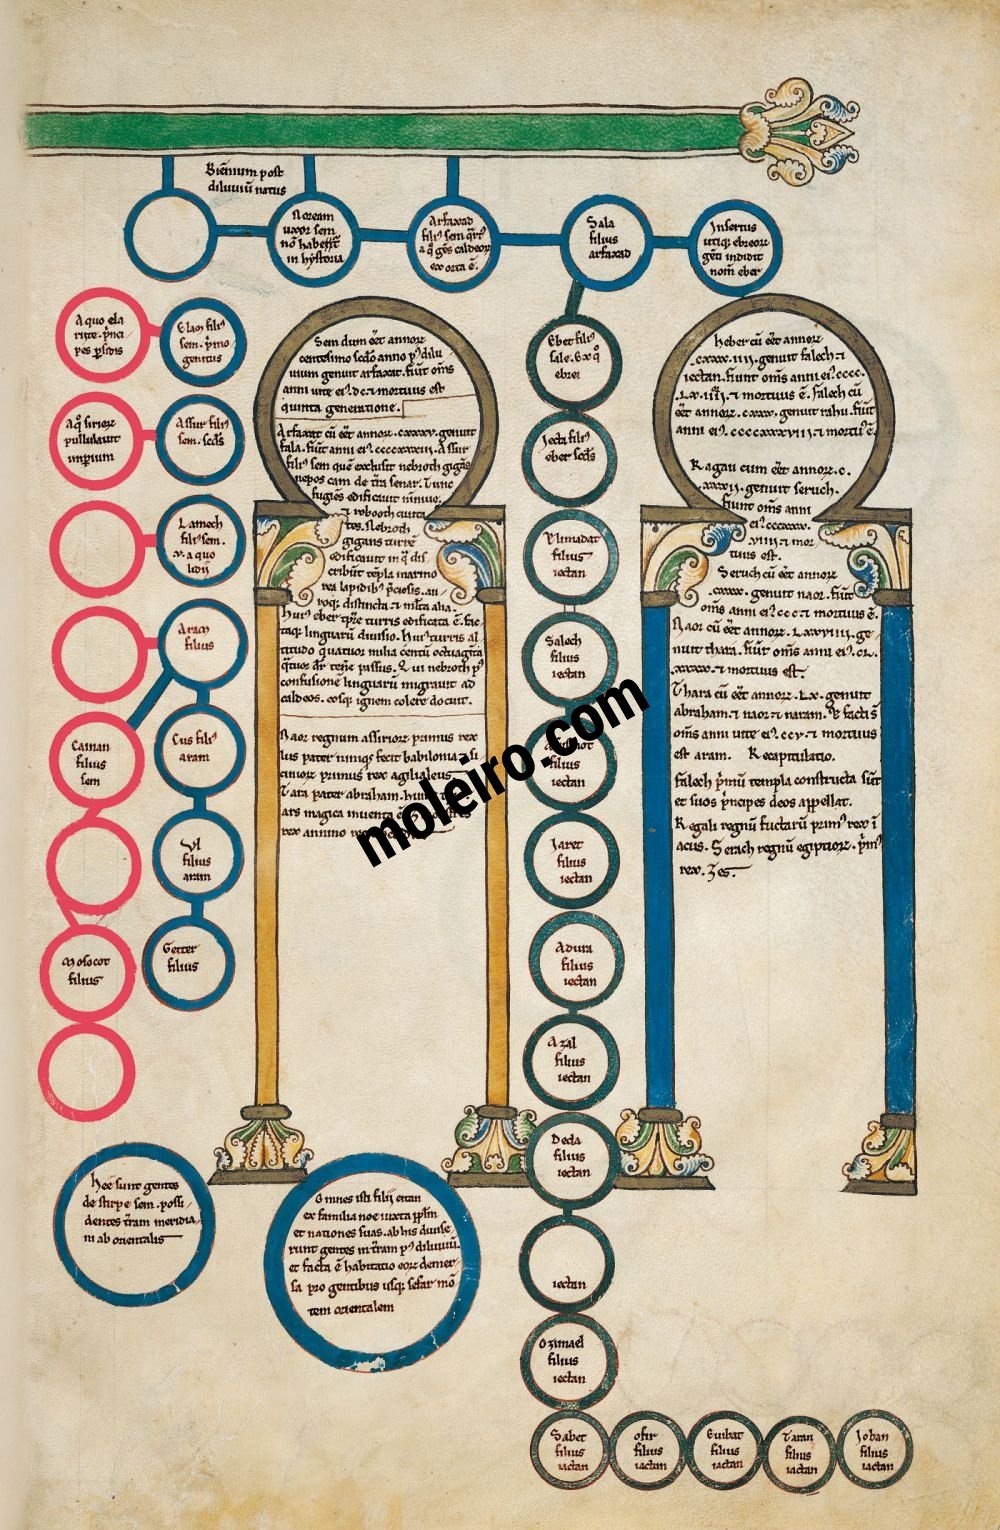 Biēnium post
diluuiū natus
Noream
uxor sem
nō habeſſꝫ
in hystoria
Arfaxad
filiꝰ sem qͥrtꝰ
a q̊ gēs caldeoꝝ
ex orta ē.
Sala
filius
arfaxad
Insertus
utiqꝫ ebreoꝝ
gēti indidit
nom̄ eber
A quo ela
riste. pͥnci
pes pͥsidis
Elam filiꝰ
sem. pͥmo
genitus
Aq̊ sirioꝝ
pullulauit
imperium
Assur filiꝰ
sem. scd̄s
Lamech
filiꝰ sem.
a quo
lidij
Aram
filius
Cainan
filius
sem
Cus filiꝰ
aram
Vl
filius
aram
Mosocot
filius
Getter
filius
Sem dum eēt annoꝝ
centesimo scd̄o anno pꝰ dilu
uium genuit arfaxat. fiūt om̄s
anni uite eiꝰ .dc. ⁊ mortuus est
quinta generatione.
Arfaxat cū eēt annoꝝ .cxxxv. genuit
sala. fiūt anni eiꝰ .ccccxxxiii. Assur
filiꝰ sem quē exclusit nebroth gigās
nepos cam de tͥra senar. Tunc
fugiēs edificauit niniue.
⁊ robooth ciuita
tes. Nebroth
gigans turrē
edificauit in q̊ dis
cribūt tēpla marmo
rea lapidibꝰ pͥciosis. au
roqꝫ distincta ⁊ mlta alia.
Huiꝰ eber tpr̄e turris edificata ē. fac
taqꝫ linguarū diuisio. Huiꝰ turris al
titudo quatuor milia centū octuagīta
qͣtuor dr̄ tenē passus. Qui nebroth pꝰ
confusionē linguarū migrauit ad
caldeos. eosqꝫ ignem colere docuit.
Naor regnum assirioꝝ primus rex
lus pater niniqꝫ fecit babilonia ⁊ si
cinioꝝ primus rex agilialeus
Tara pater abraham. huiꝰ
ars magica inuenta ē
rex annino
Eber filiꝰ
sale. Ex q̊
ebrei
Jecta filiꝰ
eber scd̄s
Elmadat
filius
iectan
Salech
filius
iectan
filius
iectan
Jaret
filius
iectan
Adura
filius
iectan
Azal
filius
iectan
Decla
filius
iectan
iectan
Ozimael
filius
iectan
Sabet
filius
iactan
ofir
filius
iactan
Euibat
filius
iactan
Taran
filius
iactan
Joban
filius
iactan
Heber cū eēt annoꝝ
.cxxxx.iiii. genuit falech ⁊
iectan. fiunt om̄s anni eiꝰ .cccc.
.Lx.iiii. ⁊ mortuus ē. falech cū
eēt annoꝝ .cxxx. genuit rahu. fiūt
anni eiꝰ .ccccxxxviii. ⁊ mortuꝰ ē.
Ragau cum eēt annoꝝ .c.
.xxxii. genuit seruch.
fiunt om̄s anni
eiꝰ .ccccxxx.
.viiii. ⁊ mor
tuus est.
Seruch cū eēt annoꝝ
.cxxx. genuit naor. fiūt
om̄s anni eiꝰ ccc ⁊ mortuus ē.
Naor cū eēt annoꝝ .Lxxviiii. ge
nuit thara. fiūt om̄s anni eiꝰ .cc.
.xxxx. ⁊ mortuus est.
Thara cū eēt annoꝝ .Lx. genuit
abraham. ⁊ naor ⁊ naram. Et facti s̄
om̄s anni uite eiꝰ .ccv. ⁊ mortuus
est aram. Recapitulatio.
Falech pͥmū templa constructa sūt
et suos pͥncipes deos appellat.
Regali regnū fuctarū primꝰ rex ī
acus. Serach regnū egiptioꝝ. pͥmꝰ
rex. Zes.
Hee sunt gentes
de stirpe sem. possi
dentes tͥram meridia
ni ab orientalis
Omnes isti filii erant
ex familia noe iuxta ppl̄m
et nationes suas. ab his diuise
runt gentes in tͥram pꝰ diluuiū.
et facta ē habitatio eoꝝ demer
sa pro gentibus usqꝫ sefar mō
tem orientalem
moleiro.com